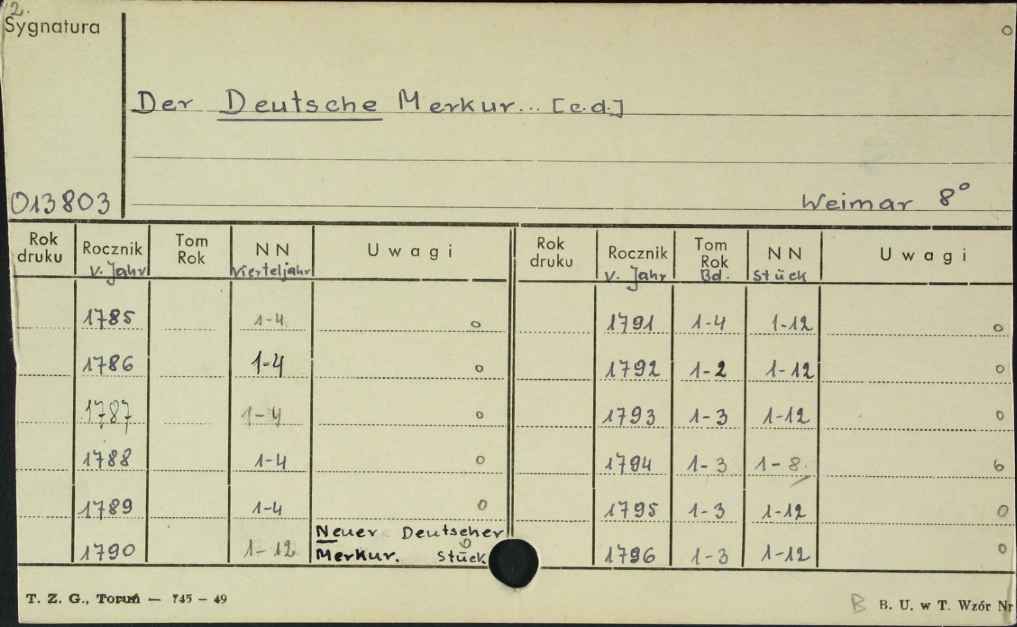 2.
Sygnatura
o
Der Deutsche Merkur... [c.d.]
013803
Weimar 8°
Rok druku Rocznik v. Jahr Tom Rok NN Vierteljahr Uwagi
1785 1-4 o
1786 1-4 o
1787 1-4 o
1788 1-4 o
1789 1-4 o
1790 1-12 Neuer Deutscher
Merkur. Stück o
Rok druku Rocznik v. Jahr Tom Rok Bd. NN Stück Uwagi
1791 1-4 1-12 o
1792 1-2 1-12 o
1793 1-3 1-12 o
1794 1-3 1-8. o
1795 1-3 1-12 o
1796 1-3 1-12 o
T. Z. G., Toruń — 745 - 49
B B. U. w T. Wzór Nr